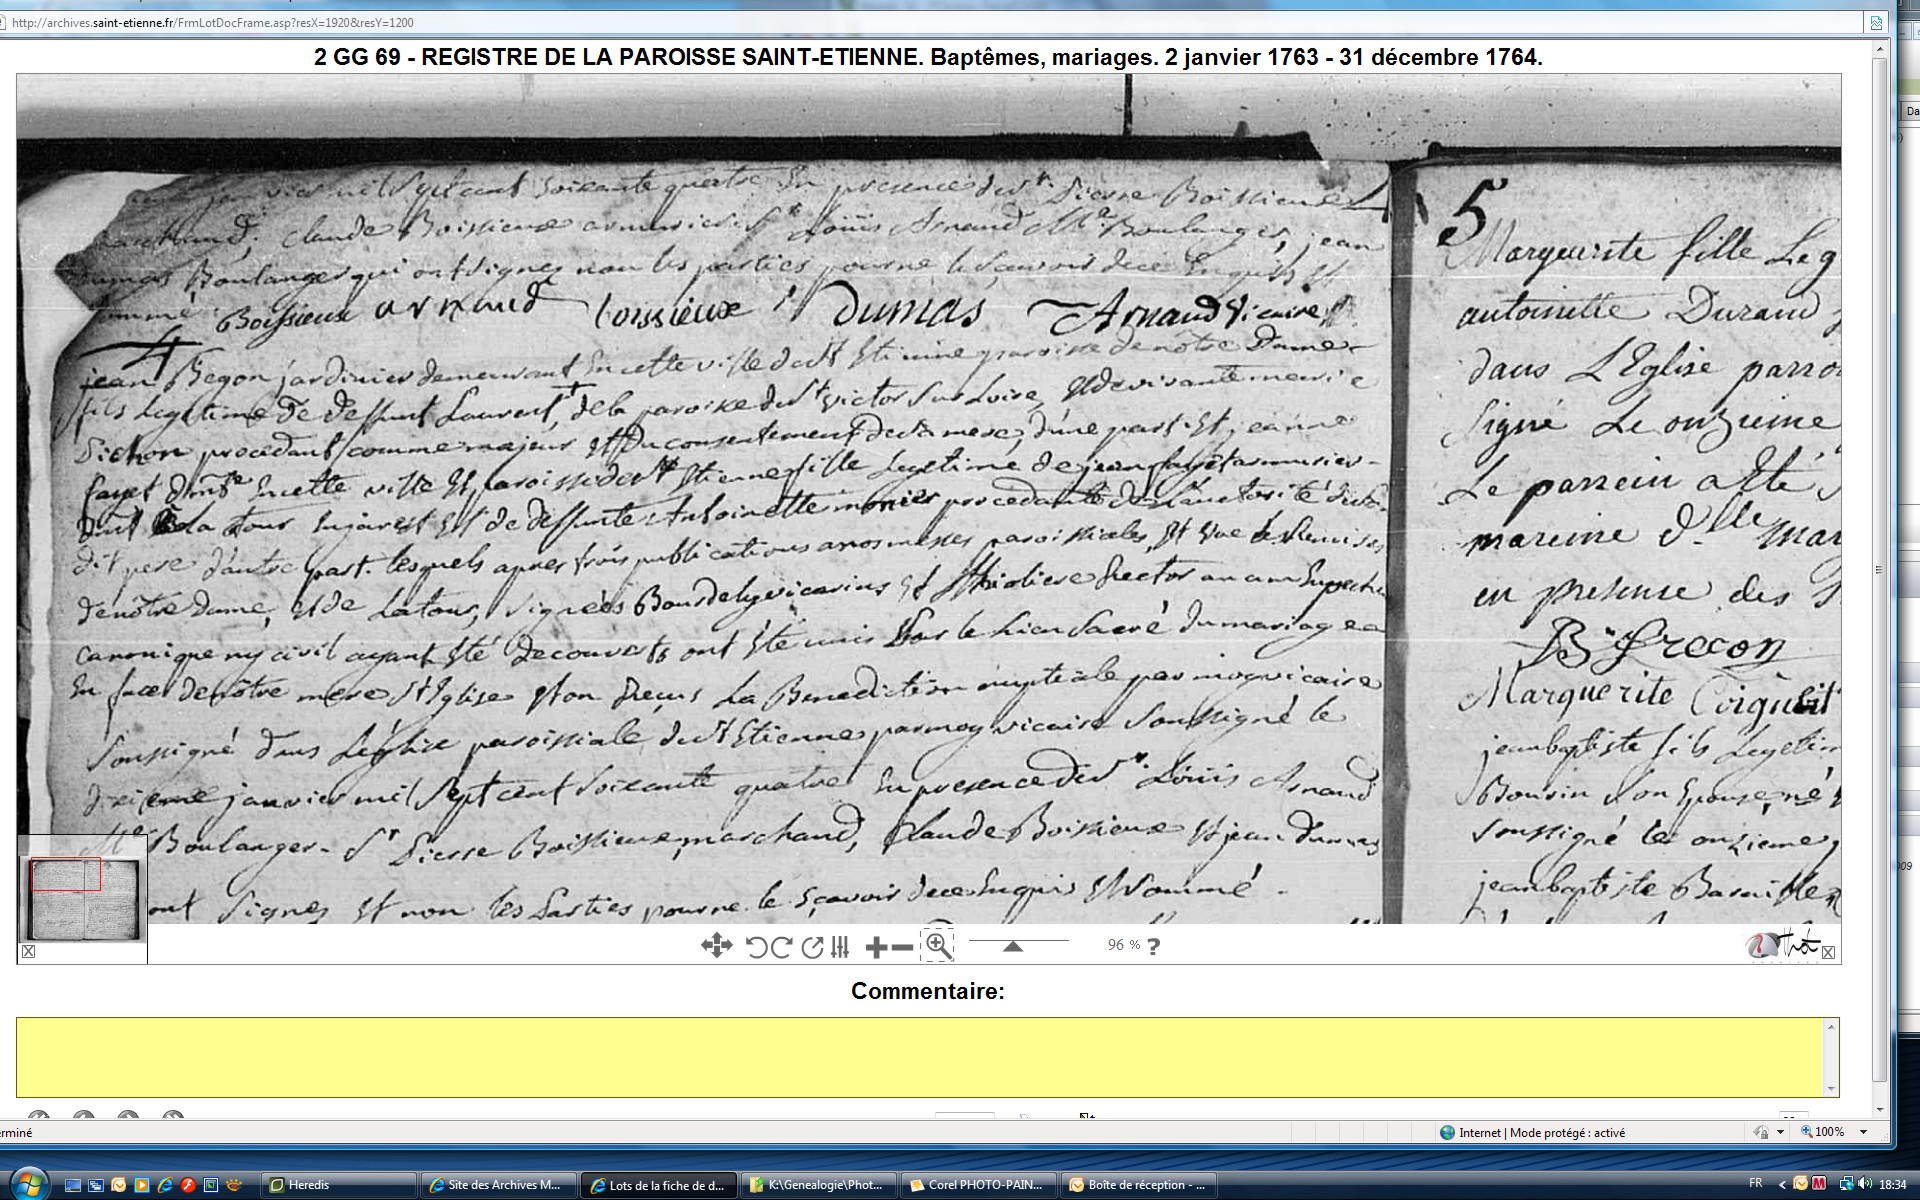 http://archives.saint-etienne.fr/FrmLotDocFrame.asp?resX=1920&resY=1200
2 GG 69 - REGISTRE DE LA PAROISSE SAINT-ETIENNE. Baptêmes, mariages. 2 janvier 1763 - 31 décembre 1764.
janvier mil sept cent soixante quatre En presence de sr. Pierre Boissieux
marchand, Claude Boissieux armurier, Sr Loüis Arnaud Me. Boulanger, jean
Dumas Boulanger qui ont signes non les parties pour ne le sçavoir de ce Enquis et
sommé.
Boissieux arnaud boissieux Dumas Arnaud vicaire
4
jean Begon jardinier demeurant En cette ville de st Etienne paroisse de nôtre Dame
fils Legetime de deffunt Laurent, de la paroisse de st victor sur Loire, Et de vivante
Pichon procedant comme majeur Et du consentement de sa mere, d'une part. Et jeanne
fayet En cette ville Et paroisse de st Etienne fille Legetime de jean fayet armurier
de la tour En jarest Et de deffunte Antoinette monier procedante de L'autorité de
dit pere d'autre part. lesquels apres trois publications a nos messes paroissiales, Et vue les Remises
de nôtre Dame, Et de Latour, signées vicarius Et Thiolière Rector aucun Empeche
canonique ny civil ayant Eté decouverts ont Eté unis par le Lien sacré du mariage
En face de nôtre mere Ste Eglise Et on Reçus La Benediction nuptiale par vicaire
soussigné dans L'eglise paroissiale de st Etienne par moy vicaire soussigné le
dixieme janvier mil sept cent soixante quatre En presence de sr. Loüis Arnaud
Me Boulanger. Sr Pierre Boissieux marchand, Claude Boissieux Et jean dumas
ont signes Et non les Parties pour ne le sçavoir de ce Enquis Et sommé.
5
Marguerite fille Leg
antoinette Durand
dans L'Eglise parro
signé Le onzieme
Le parrein a Eté
mareine d.lle mar
en presence des
Frecon
Marguerite Coignet
jean baptiste fils Legetim
Boursin son Epouse, né
soussigné le onzieme
jean baptiste
96 % ?
Commentaire:
erminé
Internet | Mode protégé : activé
100%
Heredis
Site des Archives M...
Lots de la fiche de d...
K:\Genealogie\Phot...
Corel PHOTO-PAIN...
Boîte de réception - ...
FR
18:34